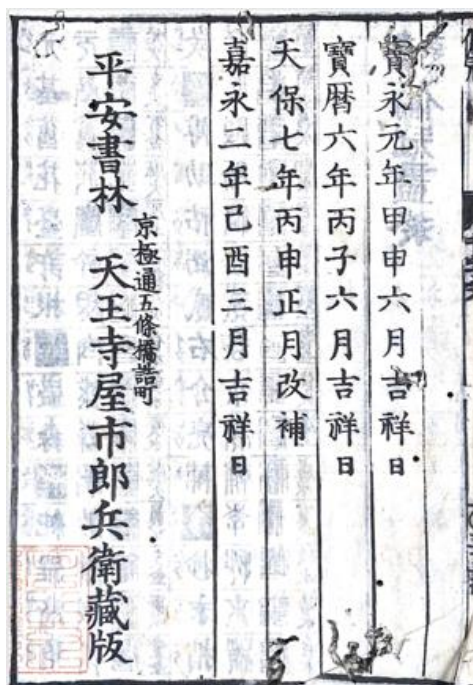 寶永元年甲申六月吉祥日
寶曆六年丙子六月吉祥日
天保七年丙申正月改補
嘉永二年己酉三月吉祥日
京極通五條橋詰町
平安書林　天王寺屋市郎兵衛藏版